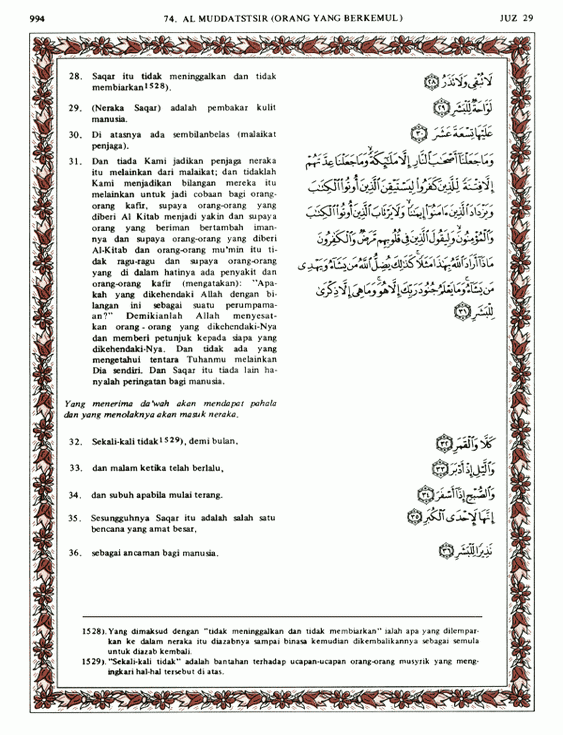 994
74. AL MUDDATSTSIR (ORANG YANG BERKEMUL)
JUZ 29
28. Saqar itu tidak meninggalkan dan tidak
membiarkan1528).
لَا تُبْقِى وَلَا تَذَرُ ﴿٢٨﴾
29. (Neraka Saqar) adalah pembakar kulit
manusia.
لَوَّاحَةٌ لِّلْبَشَرِ ﴿٢٩﴾
30. Di atasnya ada sembilanbelas (malaikat
penjaga).
عَلَيْهَا تِسْعَةَ عَشَرَ ﴿٣٠﴾
31. Dan tiada Kami jadikan penjaga neraka
itu melainkan dari malaikat; dan tidaklah
Kami menjadikan bilangan mereka itu
melainkan untuk jadi cobaan bagi orang-
orang kafir, supaya orang-orang yang
diberi Al Kitab menjadi yakin dan supaya
orang yang beriman bertambah iman-
nya dan supaya orang-orang yang diberi
Al-Kitab dan orang-orang mu'min itu ti-
dak ragu-ragu dan supaya orang-orang
yang di dalam hatinya ada penyakit dan
orang-orang kafir (mengatakan): "Apa-
kah yang dikehendaki Allah dengan bi-
langan ini sebagai suatu perumpama-
an?" Demikianlah Allah menyesat-
kan orang - orang yang dikehendaki-Nya
dan memberi petunjuk kepada siapa yang
dikehendaki-Nya. Dan tidak ada yang
mengetahui tentara Tuhanmu melainkan
Dia sendiri. Dan Saqar itu tiada lain ha-
nyalah peringatan bagi manusia.
وَمَا جَعَلْنَا أَصْحَٰبَ النَّارِ إِلَّا مَلَٰٓئِكَةً وَمَا جَعَلْنَا عِدَّتَهُمْ
إِلَّا فِتْنَةً لِّلَّذِينَ كَفَرُوا لِيَسْتَيْقِنَ الَّذِينَ أُوتُوا الْكِتَٰبَ
وَيَزْدَادَ الَّذِينَ ءَامَنُوا إِيمَٰنًا وَلَا يَرْتَابَ الَّذِينَ أُوتُوا الْكِتَٰبَ
وَالْمُؤْمِنُونَ وَلِيَقُولَ الَّذِينَ فِى قُلُوبِهِم مَّرَضٌ وَالْكَٰفِرُونَ
مَاذَا أَرَادَ اللَّهُ بِهَٰذَا مَثَلًا كَذَٰلِكَ يُضِلُّ اللَّهُ مَن يَشَآءُ وَيَهْدِى
مَن يَشَآءُ وَمَا يَعْلَمُ جُنُودَ رَبِّكَ إِلَّا هُوَ وَمَا هِىَ إِلَّا ذِكْرَىٰ
لِلْبَشَرِ ﴿٣١﴾
Yang menerima da'wah akan mendapat pahala
dan yang menolaknya akan masuk neraka.
32. Sekali-kali tidak1529), demi bulan,
كَلَّا وَالْقَمَرِ ﴿٣٢﴾
33. dan malam ketika telah berlalu,
وَالَّيْلِ إِذْ أَدْبَرَ ﴿٣٣﴾
34. dan subuh apabila mulai terang.
وَالصُّبْحِ إِذَا أَسْفَرَ ﴿٣٤﴾
35. Sesungguhnya Saqar itu adalah salah satu
bencana yang amat besar,
إِنَّهَا لَإِحْدَى الْكُبَرِ ﴿٣٥﴾
36. sebagai ancaman bagi manusia.
نَذِيرًا لِّلْبَشَرِ ﴿٣٦﴾
1528). Yang dimaksud dengan "tidak meninggalkan dan tidak membiarkan" ialah apa yang dilempar-
kan ke dalam neraka itu diazabnya sampai binasa kemudian dikembalikannya sebagai semula
untuk diazab kembali.
1529). "Sekali-kali tidak" adalah bantahan terhadap ucapan-ucapan orang-orang musyrik yang meng-
ingkari hal-hal tersebut di atas.